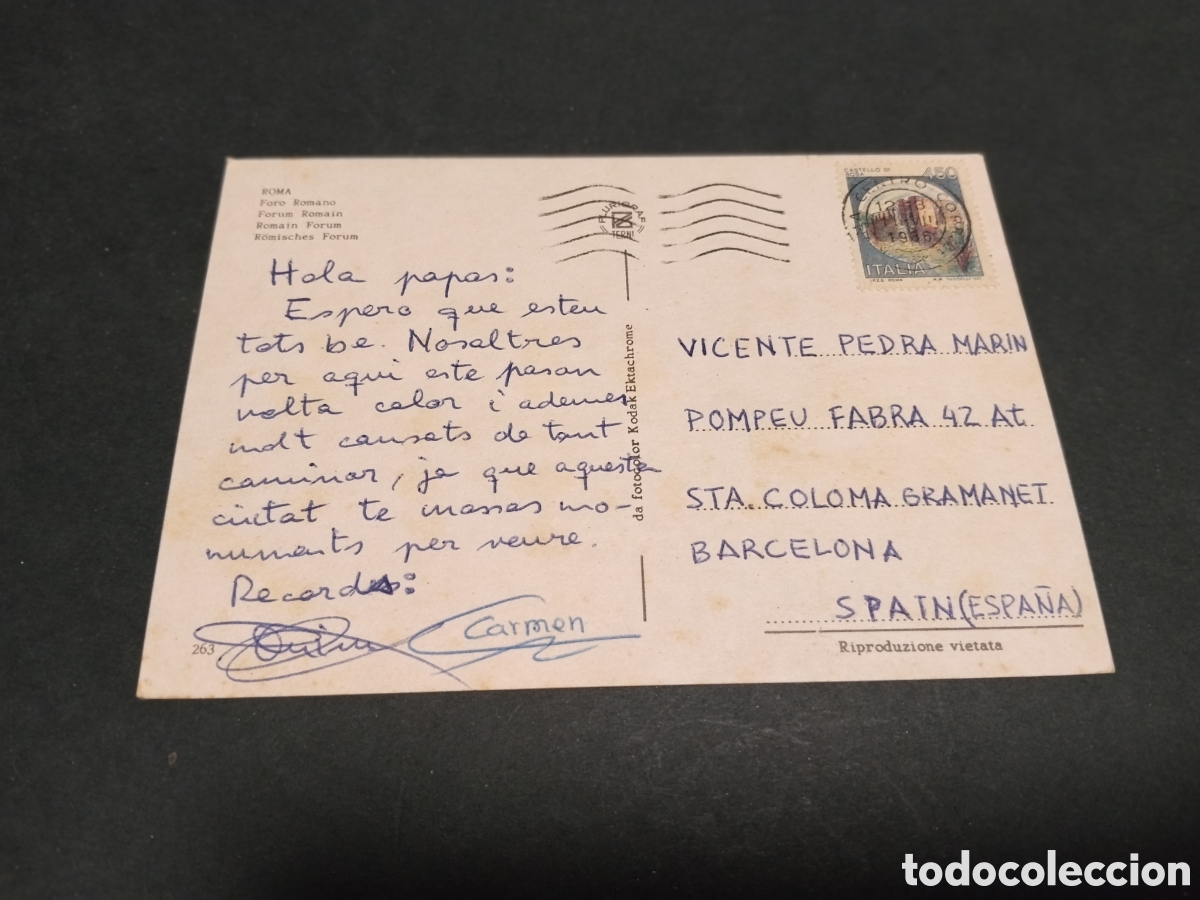 ROMA
Foro Romano
Forum Romain
Romain Forum
Römisches Forum
Hola papas:
Espero que esteu
tots be. Nosaltres
per aqui este pasan
molta calor i ademes
molt cansats de tant
caminar, ja que aquesta
ciutat te masses mo-
numents per veure.
Records:
Carmen
263
PLURIGRAF
TERNI
da fotocolor Kodak Ektachrome
CASTELLO DI
450
CENTRO CORR
1986
ITALIA
I.P.Z.S. ROMA
VICENTE PEDRA MARIN
POMPEU FABRA 42 At.
STA. COLOMA GRAMANET
BARCELONA
SPAIN (ESPAÑA)
Riproduzione vietata
todocoleccion